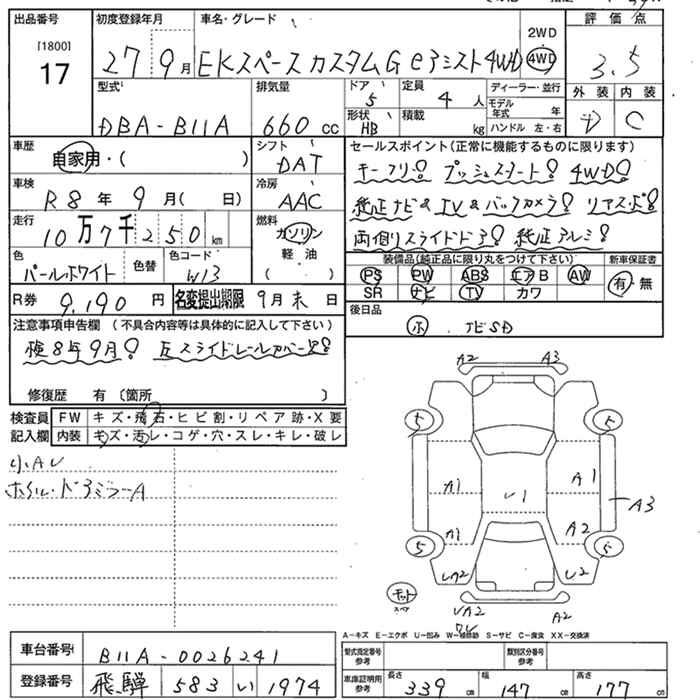 出品番号 初度登録年月 車名・グレード 2WD 評価点
[1800]
17 27 9月 EKスペースカスタムG eアシスト4WD 4WD 3.5
型式 排気量 ドア 定員 ディーラー・並行 外装 内装
DBA-B11A 660cc 5 4人 モデル年式 年 D C
形状 HB 積載 kg ハンドル 左・右
車歴 自家用・( ) シフト DAT セールスポイント(正常に機能するものに限ります)
キーフリー! プッシュスタート! 4WD!
車検 R8年9月( 日) 冷房 AAC
純正ナビ&TV&バックカメラ! リアスポ!
走行 10万7千250km 燃料 ガソリン 軽油 ( )
両側スライドドア! 純正アルミ!
色 パールホワイト 色替 色コード W13
装備品(純正品に限り丸をつけて下さい) 新車保証書
PS PW ABS エアB AW 有・無
SR ナビ TV カワ
R券 9,190円 名変提出期限 9月末日
後日品
ホ ナビSD
注意事項申告欄 (不具合内容等は具体的に記入して下さい)
検8年9月! 左スライドレールカバー欠!
修復歴 有 (箇所 )
検査員記入欄 FW キズ・飛石・ヒビ割・リペア跡・X要
内装 キズ・汚レ・コゲ・穴・スレ・キレ・破レ
小AU
ホイル・ドアミラーA
A2 A3
5 5
A1 U1 A1
A3
A1 A2
5 5
UA2 U2
モット
スペア
UA2 A2
A-キズ E-エクボ U-凹み W-補修跡 S-サビ C-腐食 XX-交換済
車台番号 B11A-0026241
型式指定番号 参考 類別区分番号 参考
登録番号 飛騨 583 い 1974
車庫証明用 参考 長さ 339cm 幅 147cm 高さ 177cm